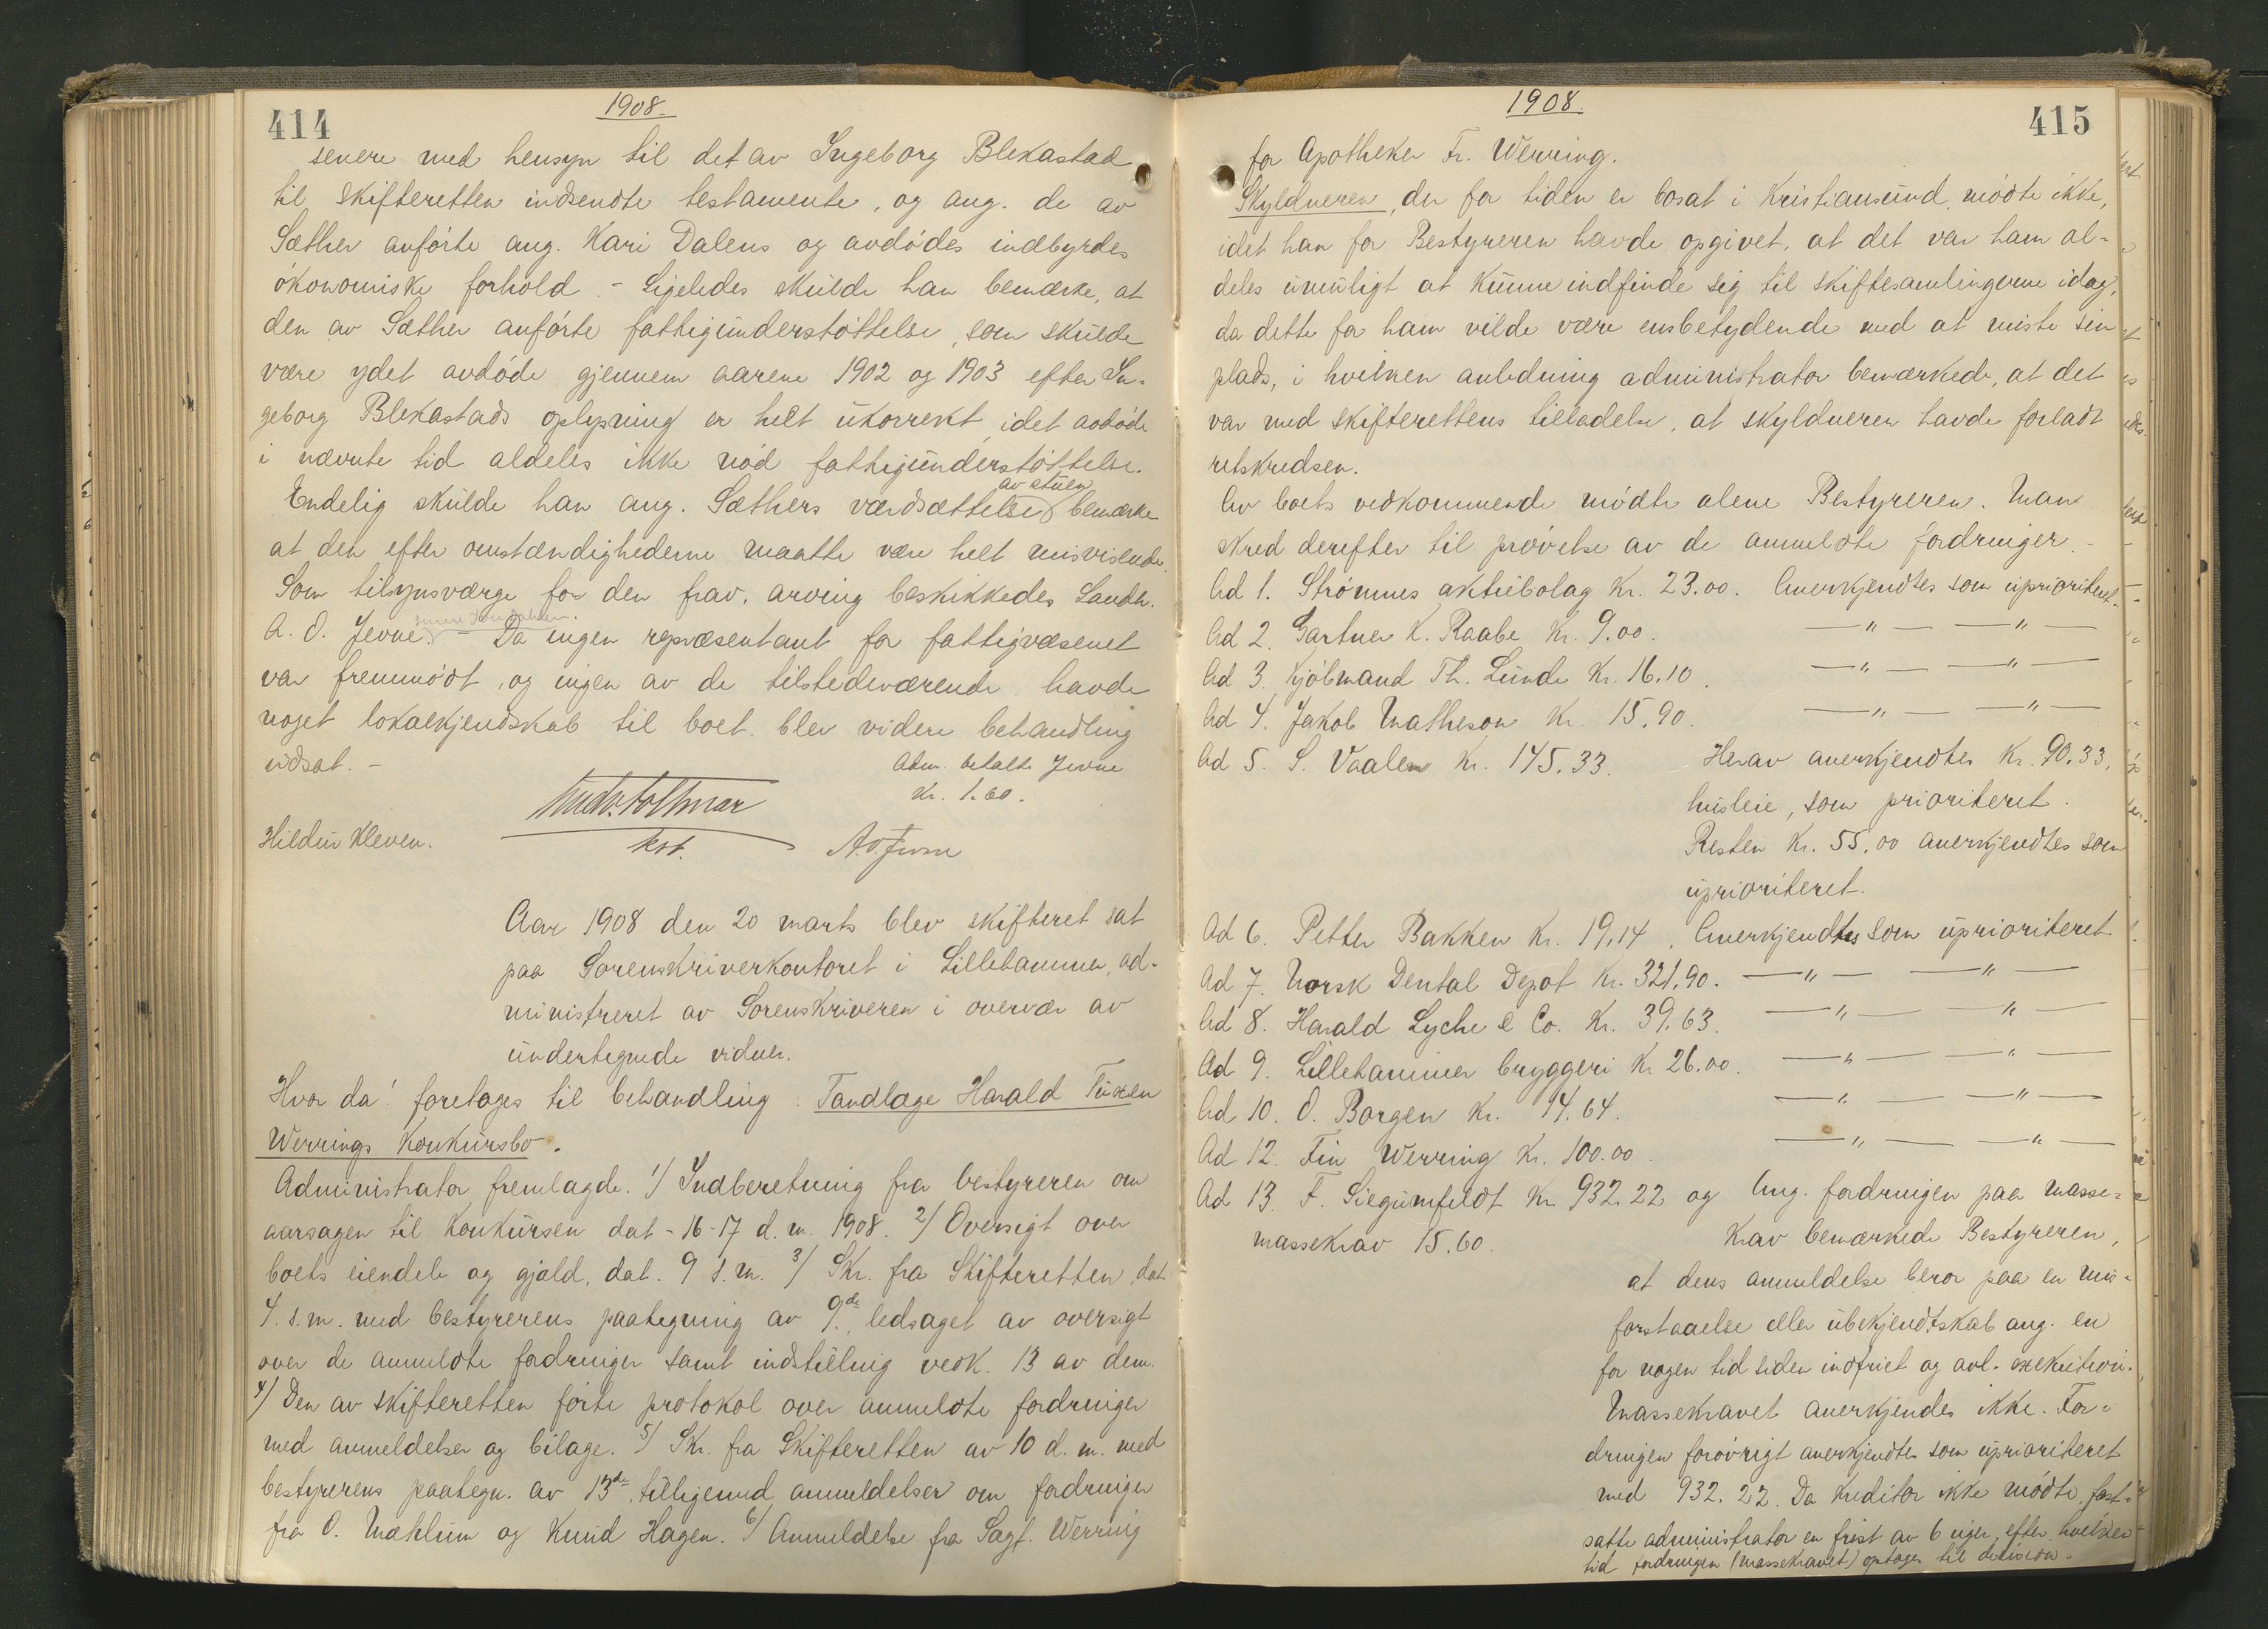 414
1908.
senere med hensyn til det av Ingeborg Blekastad
til skifteretten indsendte testamente, og ang. de av
Sæther anførte ang. Kari Dalens og avdødes indbyrdes
økonomiske forhold. - Ligeledes skulde han bemærke, at
den av Sæther anførte fattigunderstøttelse, som skulde
være ydet avdøde gjennem aarene 1902 og 1903 efter In-
geborg Blekastads oplysning er helt ukorrekt, idet avdøde
i nævnte tid aldeles ikke nød fattigunderstøttelse.
Endelig skulde han ang. Sæthers værdsættelse av stuen bemærke
at den efter omstændighederne maatte være helt misvisende.
Som tilsynsværge for den frav. arving beskikkedes Landh.
A. O. Jevne. - Da ingen repræsentant for fattigvæsenet
var fremmødt, og ingen av de tilstedeværende havde
noget lokalkjendskab til boet. blev videre behandling
udsat. -
Adm. betalte Jevne
Kr. 1.60.
Hildur Kleven.
kst.
A. O. Jevne
Aar 1908 den 20 marts blev skifteret sat
paa Sorenskriverkontoret i Lillehammer, ad-
ministreret av Sorenskriveren i overvær av
undertegnede vidner.
Hvor da! foretages til behandling: Tandlæge Harald Tuxen
Werrings konkursbo.
Administrator fremlagde. 1/ Indberetning fra bestyreren om
aarsagen til konkursen dat - 16-17 d. m. 1908. 2/ Oversigt over
boets eiendele og gjæld, dat. 9 s. m. 3/ Skr. fra Skifteretten, dat
4. s. m. med bestyrerens paategning av 9de, ledsaget av oversigt
over de anmeldte fordringer samt indstilling vedk. 13 av dem.
4/ Den av skifteretten førte protokol over anmeldte fordringer
med anmeldelser og bilage. 5/ Skr. fra Skifteretten av 10 d. m. med
bestyrerens paategn. av 13de, tilligemed anmeldelser om fordringer
fra O. Mæhlum og Knud Hagen. 6/ Anmeldelse fra Sagf. Werring
1908.
415
for Apotheker Fr. Werring.
Skyldneren, der for tiden er bosat i Kristiansund, mødte ikke,
idet han for Bestyreren havde opgivet, at det var ham al-
deles umuligt at kunne indfinde sig til skiftesamlingerne idag,
da dette for ham vilde være ensbetydende med at miste sin
plads, i hvilken anledning administrator bemærkede, at det
var med skifterettens tilladelse, at skyldneren havde forladt
retskredsen.
Av boets vedkommende mødte alene Bestyreren. Man
skred derefter til prøvelse av de anmeldte fordringer. -
Ad 1. Strømmes aktiebolag Kr. 23.00. Anerkjendtes som uprioriteret.
Ad 2. Gartner K. Raabe Kr. 9.00. —"— —"—
Ad 3. Kjøbmand Th. Lunde Kr. 16.10. —"— —"—
Ad 4. Jakob Matheson Kr. 15.90. —"— —"—
Ad 5. S. Vaalen Kr. 145.33. Herav anerkjendtes Kr. 90.33,
husleie, som prioriteret.
Resten Kr. 55.00 anerkjendtes som
uprioriteret.
Ad 6. Petter Bakken Kr. 19.14. Anerkjendtes som uprioriteret.
Ad 7. Norsk Dental Depot Kr. 321.90. —"— —"—
Ad 8. Harald Lyche & Co. Kr. 39.63. —"— —"—
Ad 9. Lillehammer bryggeri Kr 26.00. —"— —"—
Ad 10. O. Borgen Kr. 14.64. —"— —"—
Ad 12. Fin Werring Kr. 100.00. —"— —"—
Ad 13. F. Siegumfeldt Kr 932.22 og Ang. fordringen paa masse-
massekrav 15.60. krav bemærkede Bestyreren,
at dens anmeldelse beror paa en mis-
forstaaelse eller ubekjendtskab ang. en
for nogen tid siden indfriet og avl. exekution.
Massekravet anerkjendes ikke. For-
dringen forøvrigt anerkjendtes som uprioriteret
med 932.22. Da kreditor ikke mødte, fast-
satte administrator en frist av 6 uger, efter hvilken
tid fordringen (massekravet) optages til decision.